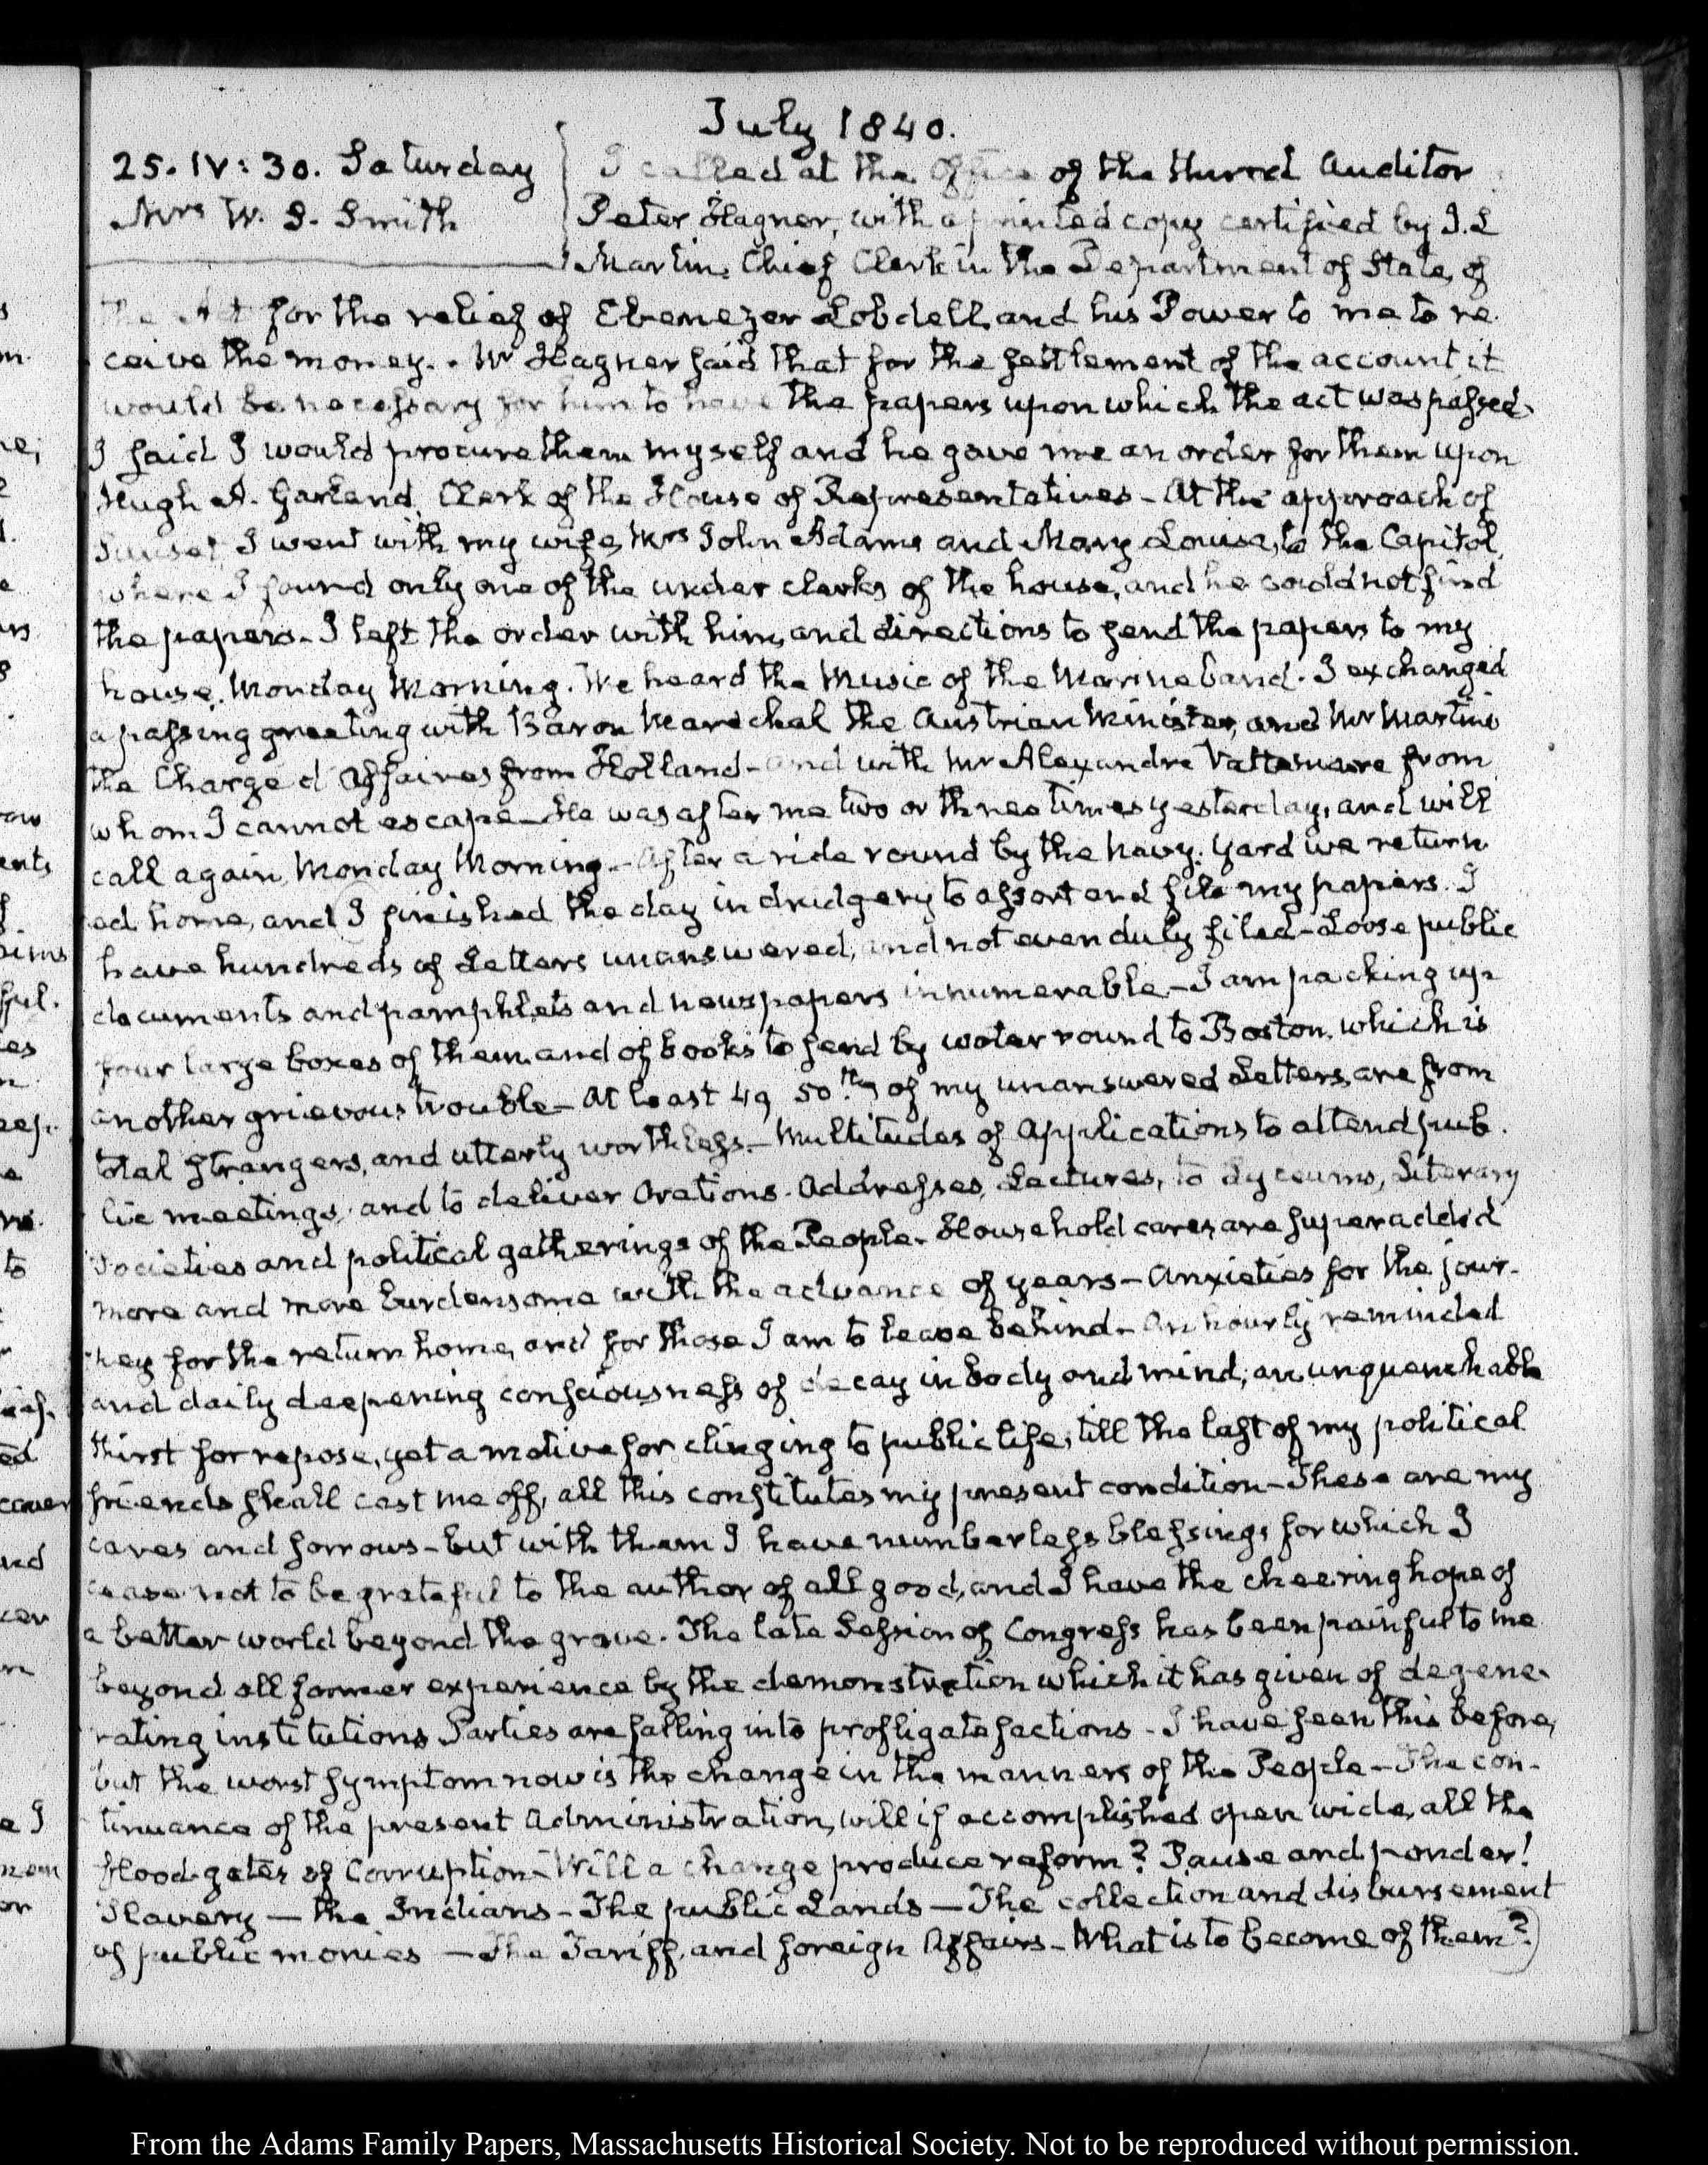 July 1840.
25. IV: 30. Saturday
Mrs W. S. Smith
I called at the Office of the third Auditor
Peter Hagner, with a printed copy certified by J. L
Martin, Chief Clerk in the Department of State, of
the Act for the relief of Ebenezer Lobdell, and his Power to me to re-
ceive the money. Mr Hagner said that for the settlement of the account it
would be necessary for him to have the papers upon which the act was passed.
I said I would procure them myself and he gave me an order for them upon
Hugh A. Garland, Clerk of the House of Representatives - At the approach of
Sunset, I went with my wife, Mrs John Adams and Mary Louisa, to the Capitol,
where I found only one of the under clerks of the house, and he could not find
the papers - I left the order with him, and directions to send the papers to my
house. Monday Morning. We heard the Music of the Marine band. I exchanged
a passing greeting with Baron Mareschal the Austrian Minister, and Mr Martini
the Chargé d'Affaires from Holland - and with Mr Alexandre Vattemare from
whom I cannot escape - He was after me two or three times yesterday, and will
call again, Monday Morning. - After a ride round by the Navy-Yard we return
ed home, and I finished the day in drudgery to assort and file my papers. I
have hundreds of Letters unanswered, and not even duly filed - Loose public
documents and pamphlets and newspapers innumerable - I am packing up
four large boxes of them and of books to send by water round to Boston, which is
another grievous trouble - At least 49 50.ths of my unanswered Letters, are from
total strangers, and utterly worthless. - Multitudes of Applications to attend pub.
lic meetings, and to deliver Orations. Addresses, Lectures, to Lyceums, Literary
Societies and political gatherings of the People - Household cares are superadded
more and more burdensome with the advance of years - Anxieties for the jour-
ney for the return home, and for those I am to leave behind - An hourly reminded
and daily deepening consciousness of decay in body and mind; an unquenchable
thirst for repose, yet a motive for clinging to public life, till the last of my political
friends shall cast me off, all this constitutes my present condition - These are my
cares and sorrows - but with them I have numberless blessings for which I
cease not to be grateful to the author of all good, and I have the cheering hope of
a better world beyond the grave. The late Session of Congress has been painful to me
beyond all former experience by the demonstration which it has given of degene-
rating institutions Parties are falling into profligate factions - I have seen this before,
but the worst symptom now is the change in the manners of the People - The con-
tinuance of the present Administration, will if accomplished open wide, all the
flood-gates of Corruption - Will a change produce reform? Pause and ponder!
Slavery — the Indians - The public Lands — The collection and disbursement
of public monies — The Tariff, and foreign Affairs - What is to become of them?)
From the Adams Family Papers, Massachusetts Historical Society. Not to be reproduced without permission.